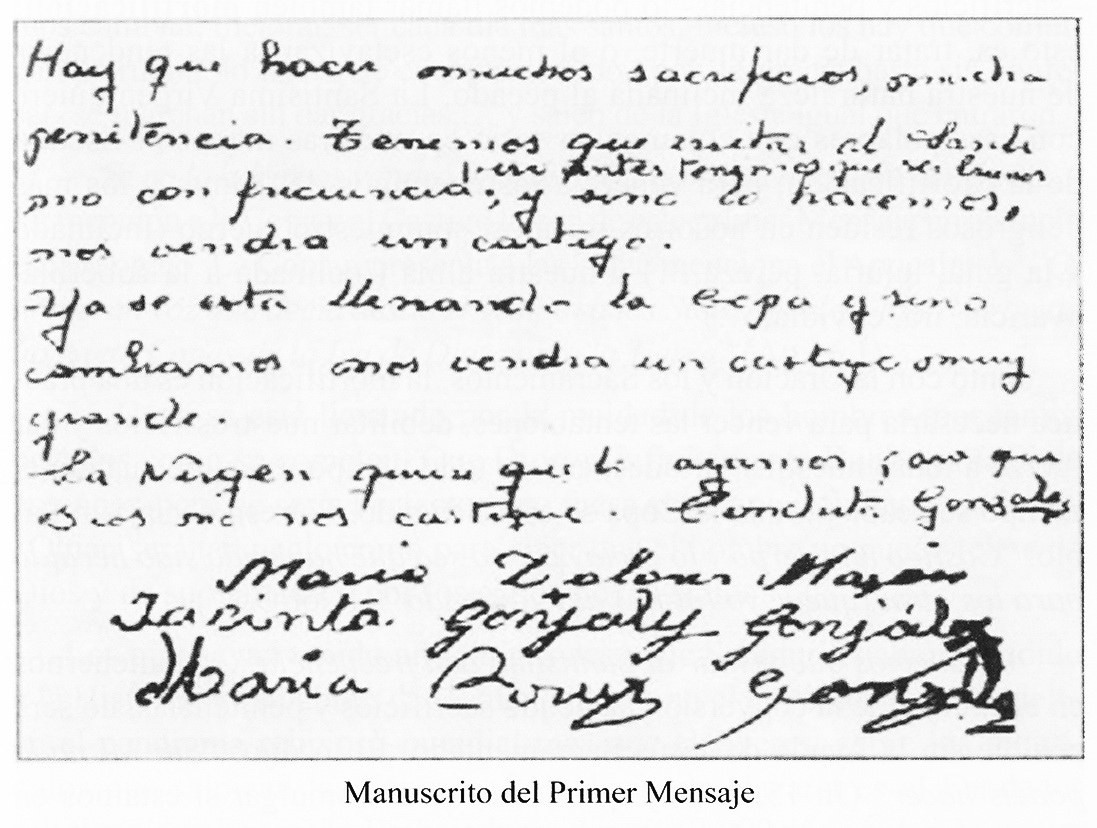 Hay que hacer muchos sacrificios, mucha
penitencia. Tenemos que visitar al Santi
pero antes tengo que ser buenos
mo con frecuencia, y sino lo hacemos,
nos vendra un castigo.
Ya se está llenand- la copa y sino
cambiamos nos vendra un castigo muy
grande.
La Virgen quiere que lo agamos para que
Dios no nos castigue Conchita Gonzalez
Maria Dolores Mazon
Jacinta Gonzalez Gonzalez
Maria Cruz Gonzalez
Manuscrito del Primer Mensaje